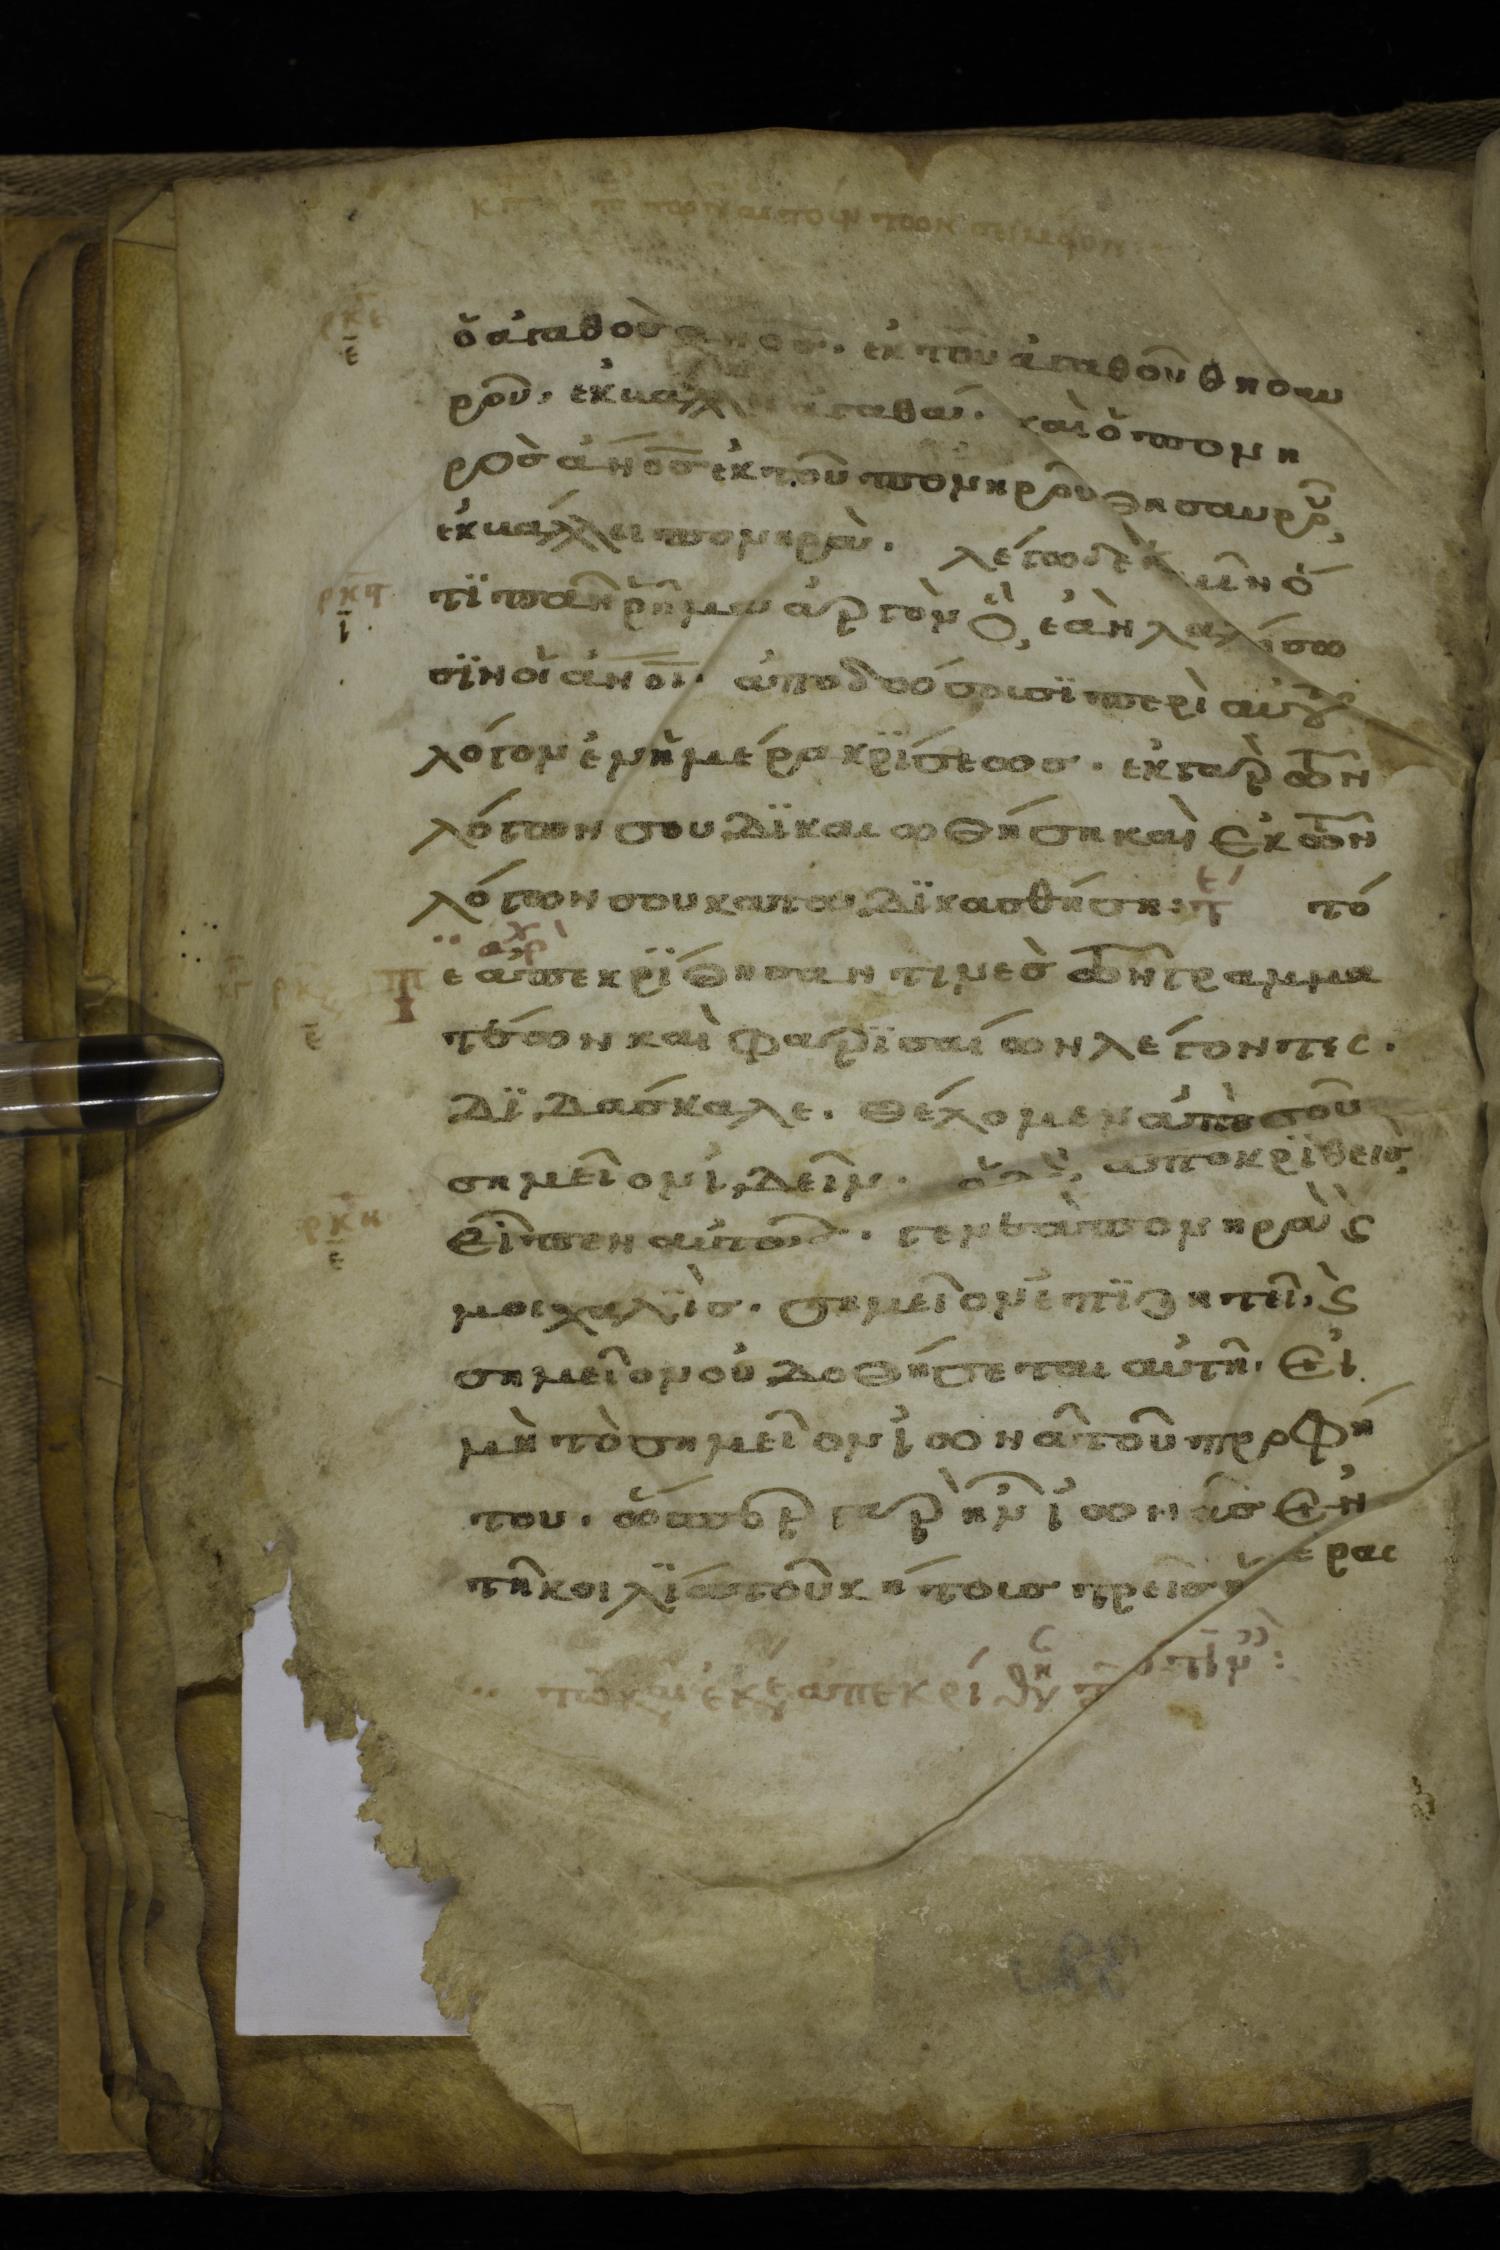 κγ πε τω αιτουντων σημειον:
ρκε
ε
ὁ ἀγαθὸς ανος. ἐκ τοῦ ἀγαθοῦ θησαυ
ροῦ. ἐκβάλλει ἀγαθά. καὶ ὁ πονη
ρὸσ ἀνοσ ἐκ τοῦ πονηροῦ θησαυροῦ,
ἐκβάλλει πονηρὰ. λέγω δὲ ὑμῖν ὅ
ρκϛ
ι
τϊ πᾶν ῥῆμα ἀργὸν ὃ, ἐὰν λαλήσω
σϊν οἱ ἀνοι. ἀποδώσουσϊ περὶ αὐτοῦ
λόγον ἐν ἡμέρα κρϊσεωσ. ἐκ γὰρ τῶν
λόγων σου δϊκαιωθήση καὶ ἐκ τῶν
λόγων σου καταδϊκασθήση: τό
τε ἀπεκρϊθησαν τινεσ τῶν γραμμα
ρκζ
ε
τέων καὶ φαρϊσαίων λέγοντες.
δϊδάσκαλε. θέλομεν ἀπὸ σοῦ
σημεῖον ἰδεῖν. ὁ δὲ, ἀποκρϊθεὶς,
ρκη
ε
εἶπεν αὐτοῖσ. γενεὰ πονηρὰ ϛ
μοιχαλϊσ. σημεῖον ἐπϊζητεῖ, ϛ
σημεῖον οὐ δοθήσεται αὐτῆ. εἰ
μὴ τὸ σημεῖον ἰωνᾶ τοῦ προφή
του. ὥσπερ γὰρ ἦν ἰωνᾶσ ἐν
τῆ κοιλϊα τοῦ κήτουσ τρεῖσ ἡμερας